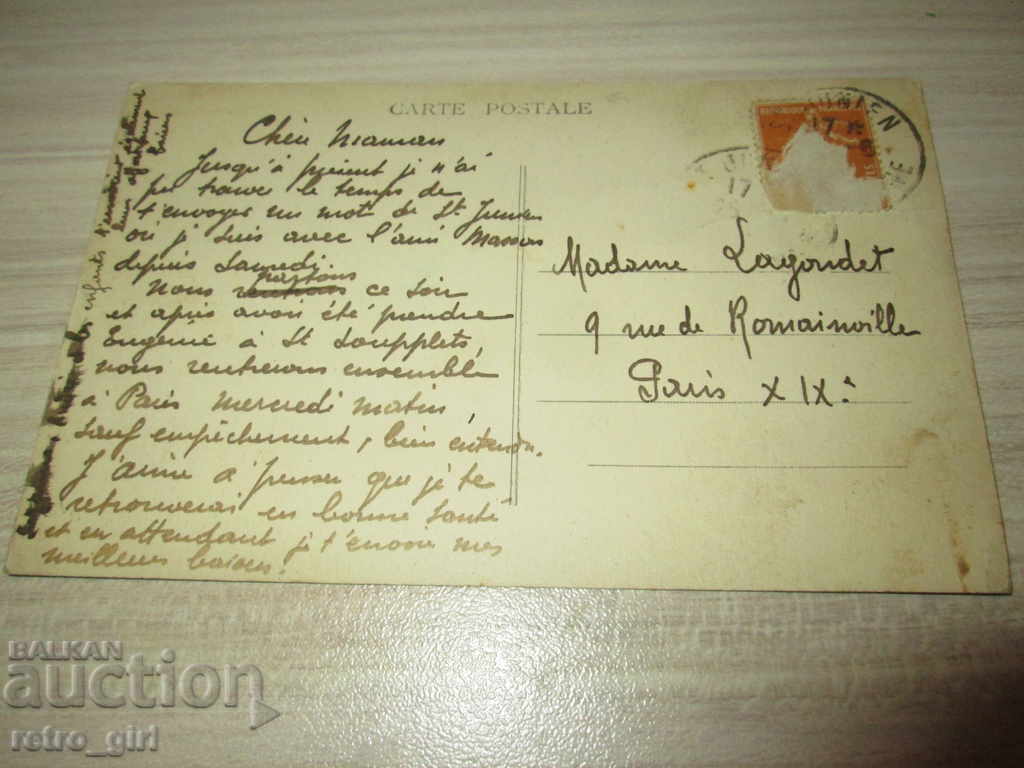 CARTE POSTALE
Chère Maman
Jusqu'à présent je n'ai
pu trouver le temps de
t'envoyer un mot de St Junien
où je suis avec l'ami Masson
depuis Samedi.
Nous partons ce soir
et après avoir été prendre
Eugénie à St Soupplets,
nous rentrerons ensemble
à Paris mercredi matin,
sauf empêchement, bien entendu.
J'aime à penser que je te
retrouverai en bonne santé
et en attendant je t'envoie mes
meilleurs baisers.
les enfants
Madame Lagoudet
9 rue de Romainville
Paris XIXe
17
17
BALKAN
auction
retro_girl